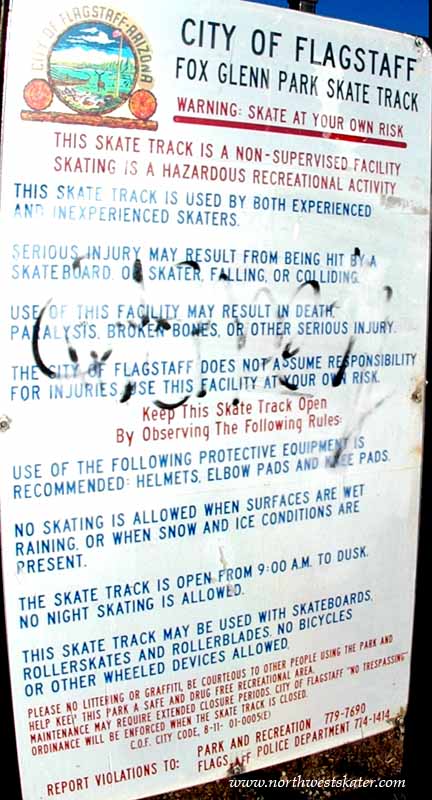 CITY OF FLAGSTAFF-ARIZONA
CITY OF FLAGSTAFF
FOX GLENN PARK SKATE TRACK
WARNING: SKATE AT YOUR OWN RISK
THIS SKATE TRACK IS A NON-SUPERVISED FACILITY
SKATING IS A HAZARDOUS RECREATIONAL ACTIVITY
THIS SKATE TRACK IS USED BY BOTH EXPERIENCED
AND INEXPERIENCED SKATERS.
SERIOUS INJURY MAY RESULT FROM BEING HIT BY A
SKATEBOARD, OR SKATER, FALLING, OR COLLIDING.
USE OF THIS FACILITY MAY RESULT IN DEATH,
PARALYSIS, BROKEN BONES, OR OTHER SERIOUS INJURY.
THE CITY OF FLAGSTAFF DOES NOT ASSUME RESPONSIBILITY
FOR INJURIES USE THIS FACILITY AT YOUR OWN RISK.
Keep This Skate Track Open
By Observing The Following Rules:
USE OF THE FOLLOWING PROTECTIVE EQUIPMENT IS
RECOMMENDED: HELMETS, ELBOW PADS AND KNEE PADS.
NO SKATING IS ALLOWED WHEN SURFACES ARE WET
RAINING, OR WHEN SNOW AND ICE CONDITIONS ARE
PRESENT.
THE SKATE TRACK IS OPEN FROM 9:00 A.M. TO DUSK.
NO NIGHT SKATING IS ALLOWED.
THIS SKATE TRACK MAY BE USED WITH SKATEBOARDS,
ROLLERSKATES AND ROLLERBLADES. NO BICYCLES
OR OTHER WHEELED DEVICES ALLOWED.
PLEASE NO LITTERING OR GRAFFITI, BE COURTEOUS TO OTHER PEOPLE USING THE PARK AND
HELP KEEP THIS PARK A SAFE AND DRUG FREE RECREATIONAL AREA.
MAINTENANCE MAY REQUIRE EXTENDED CLOSURE PERIODS. CITY OF FLAGSTAFF "NO TRESPASSING"
ORDINANCE WILL BE ENFORCED WHEN THE SKATE TRACK IS CLOSED.
C.O.F. CITY CODE, 8-11- 01-0005(E)
REPORT VIOLATIONS TO: PARK AND RECREATION 779-7690
FLAGSTAFF POLICE DEPARTMENT 774-1414
www.northwestskater.com